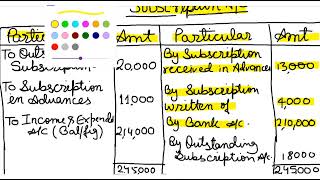 Subscription A/c
Particular Amt
To Outs
Subscription 20,000
To Subscription
en Advances 11,000
To Income & Expendi
A/c (Bal/fig) 2,14,000
245000
Particular Amt
By Subscription
received in Advance 13,000
By Subscription
written of 4000
By Bank A/c. 2,10,000
By Outstanding
Subscription A/c. 18000
245000